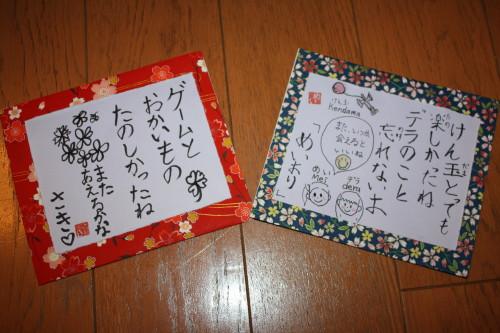 ゲームと
おかいもの
たのしかったね
また
あえるかな
さきこ♡
けん玉とても
楽しかたね
デラのこと
忘れないよ
めいより
けん玉
kendama
また、いつか
会えると
いいね
めい
Mei
デラ
dera